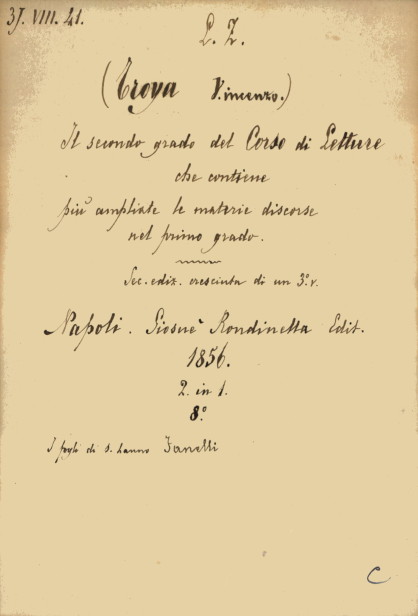 37. VIII. 41.
P. Z.
(Troya Vincenzo.)
Il secondo grado del Corso di Letture
che contiene
più ampliate le materie discorse
nel primo grado.
Sec. ediz. cresciuta di un 3.º v.
Napoli. Giosuè Rondinella Edit.
1856.
2. in 1.
8º
I fogli di s. hanno Zanelli
C